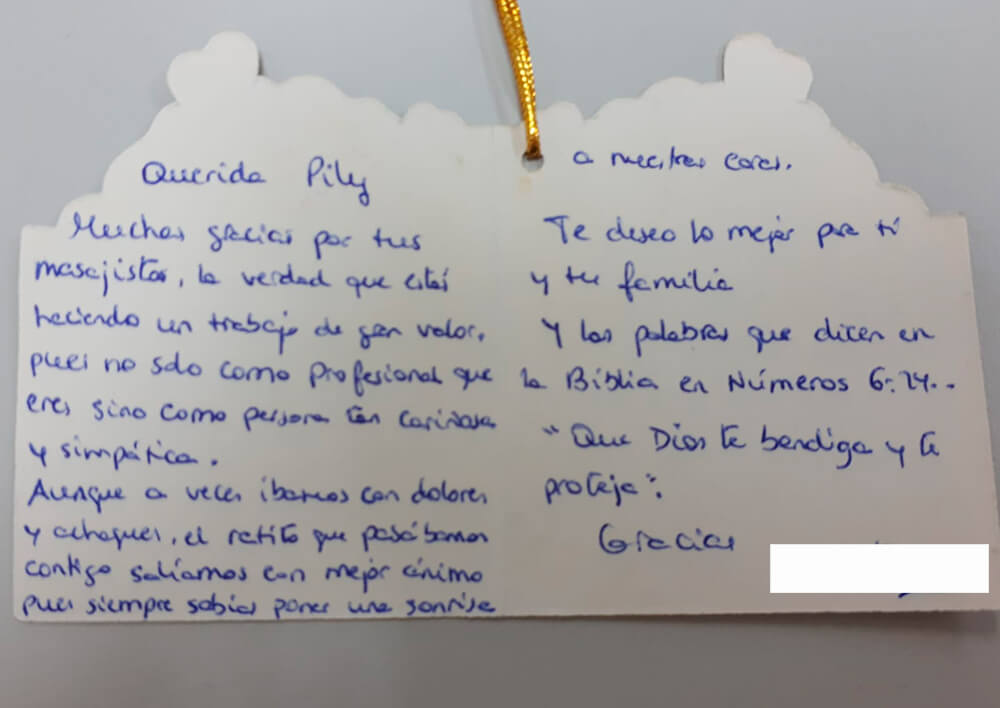 Querida Pily
Muchas gracias por tus
masajistas, la verdad que estás
haciendo un trabajo de gran valor,
pues no solo como profesional que
eres sino como persona tan cariñosa
y simpática.
Aunque a veces íbamos con dolores
y achaques, el ratito que pasábamos
contigo salíamos con mejor ánimo
pues siempre sabías poner una sonrisa
a nuestras caras.
Te deseo lo mejor para tí
y tu familia
Y las palabras que dicen en
la Biblia en Números 6:24..
"Que Dios te bendiga y te
proteja".
Gracias